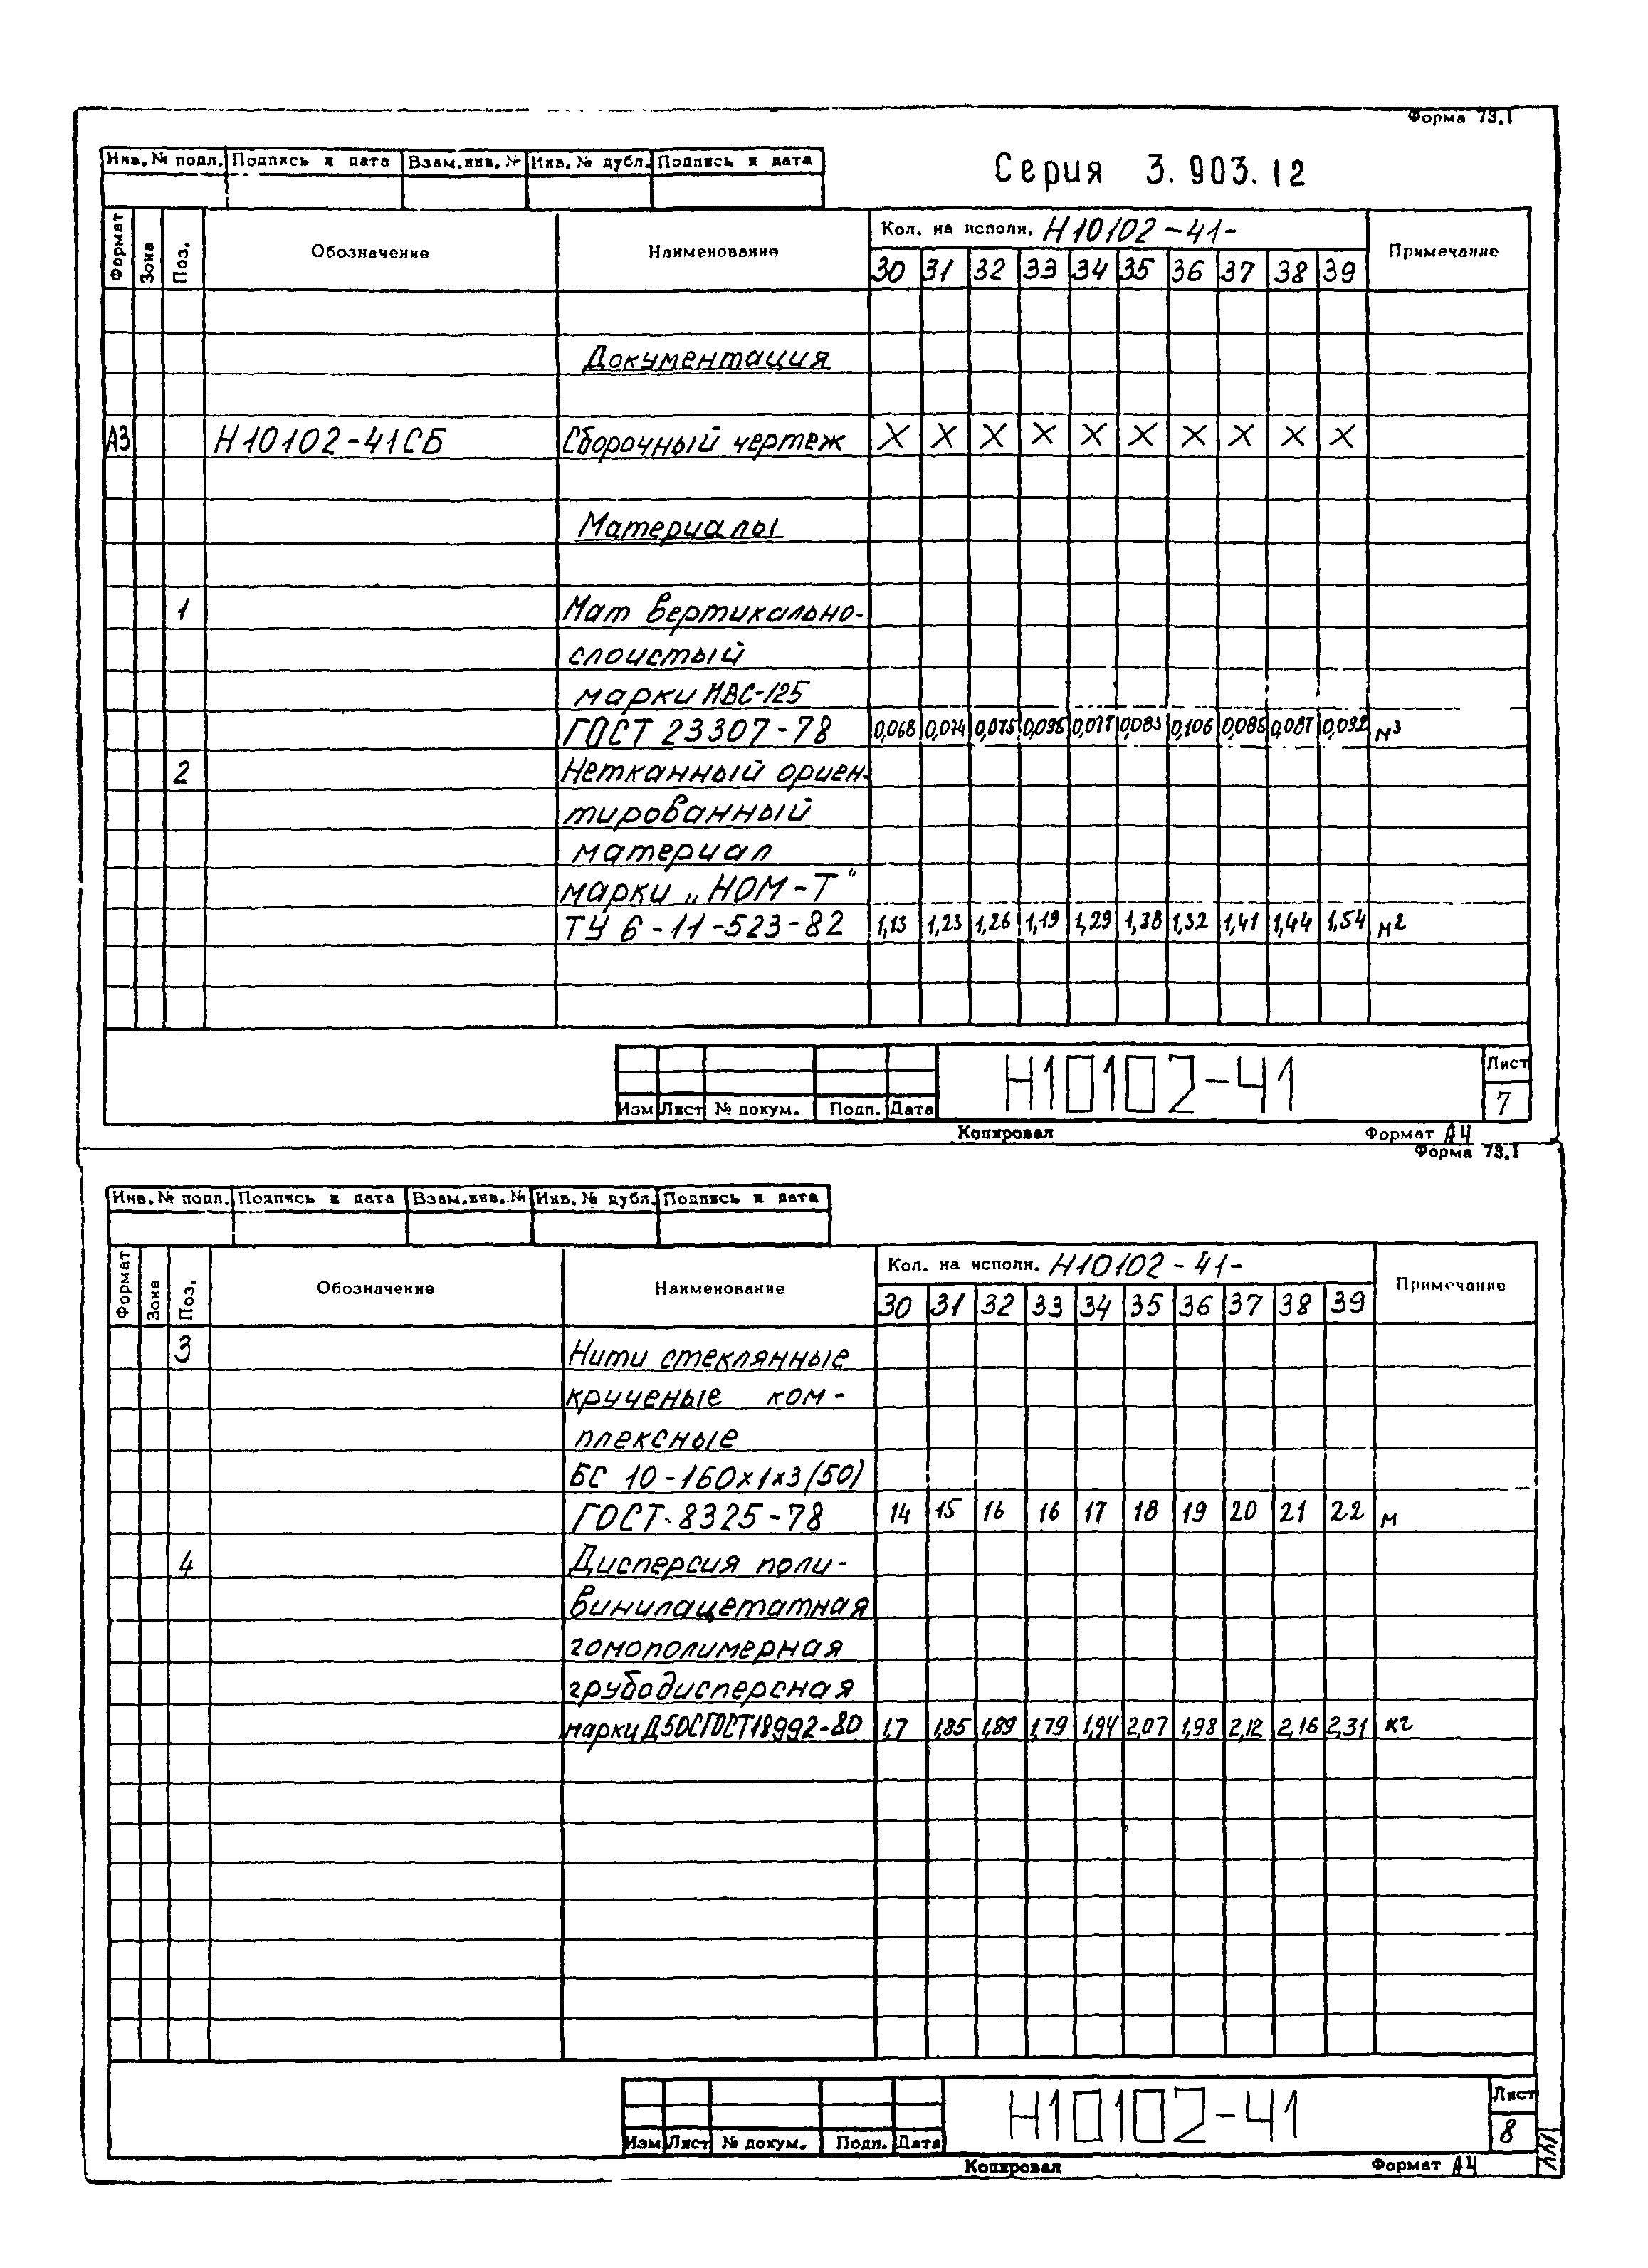 Форма 73.1
Инв. № подл. Подпись и дата Взам.инв. № Инв. № дубл. Подпись и дата
Серия 3.903.12
Формат Зона Поз. Обозначение Наименование Кол. на исполн. Н10102-41- Примечание
30 31 32 33 34 35 36 37 38 39
Документация
А3 Н10102-41СБ Сборочный чертеж X X X X X X X X X X
Материалы
1 Мат вертикально-
слоистый
марки МВС-125
ГОСТ 23307-78 0,068 0,074 0,075 0,096 0,077 0,083 0,106 0,086 0,087 0,092 м3
2 Нетканный ориен-
тированный
материал
марки „НОМ-Т"
ТУ 6-11-523-82 1,13 1,23 1,26 1,19 1,29 1,38 1,32 1,41 1,44 1,54 м2
Изм Лист № докум. Подп. Дата Н10102-41 Лист 7
Копировал Формат А4
Форма 73.1
Инв. № подл. Подпись и дата Взам.инв. № Инв. № дубл. Подпись и дата
Формат Зона Поз. Обозначение Наименование Кол. на исполн. Н10102-41- Примечание
30 31 32 33 34 35 36 37 38 39
3 Нити стеклянные
крученые ком-
плексные
БС 10-160х1х3(50)
ГОСТ 8325-78 14 15 16 16 17 18 19 20 21 22 м
4 Дисперсия поли-
винилацетатная
гомополимерная
грубодисперсная
марки Д50С ГОСТ 18992-80 1,7 1,85 1,89 1,79 1,94 2,07 1,98 2,12 2,16 2,31 кг
Изм Лист № докум. Подп. Дата Н10102-41 Лист 8
Копировал Формат А4